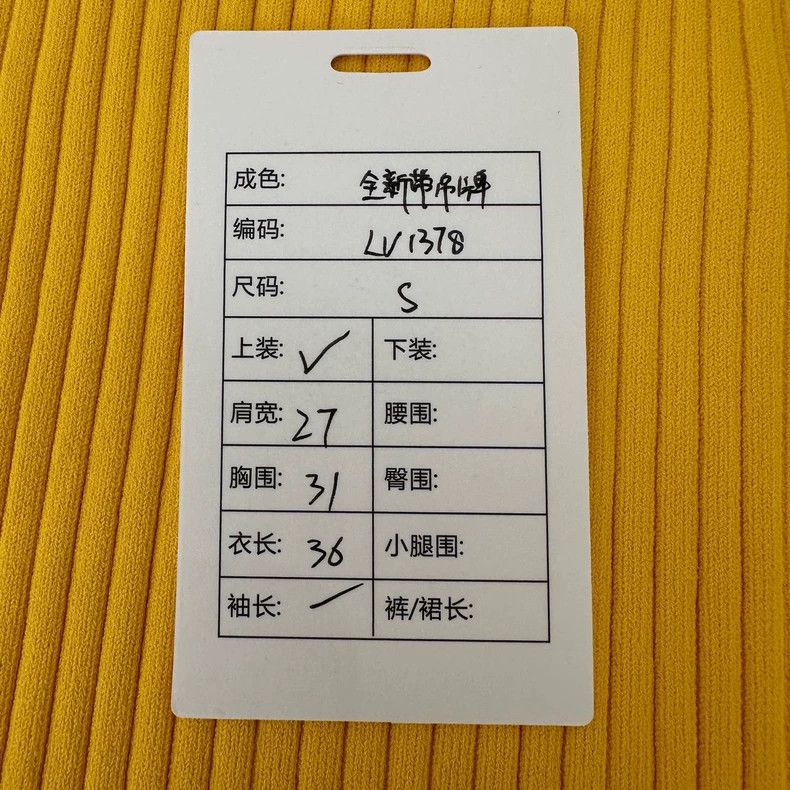 成色: 全新带吊牌
编码: LV1378
尺码: S
上装: ✓ 下装:
肩宽: 27 腰围:
胸围: 31 臀围:
衣长: 36 小腿围:
袖长: / 裤/裙长: